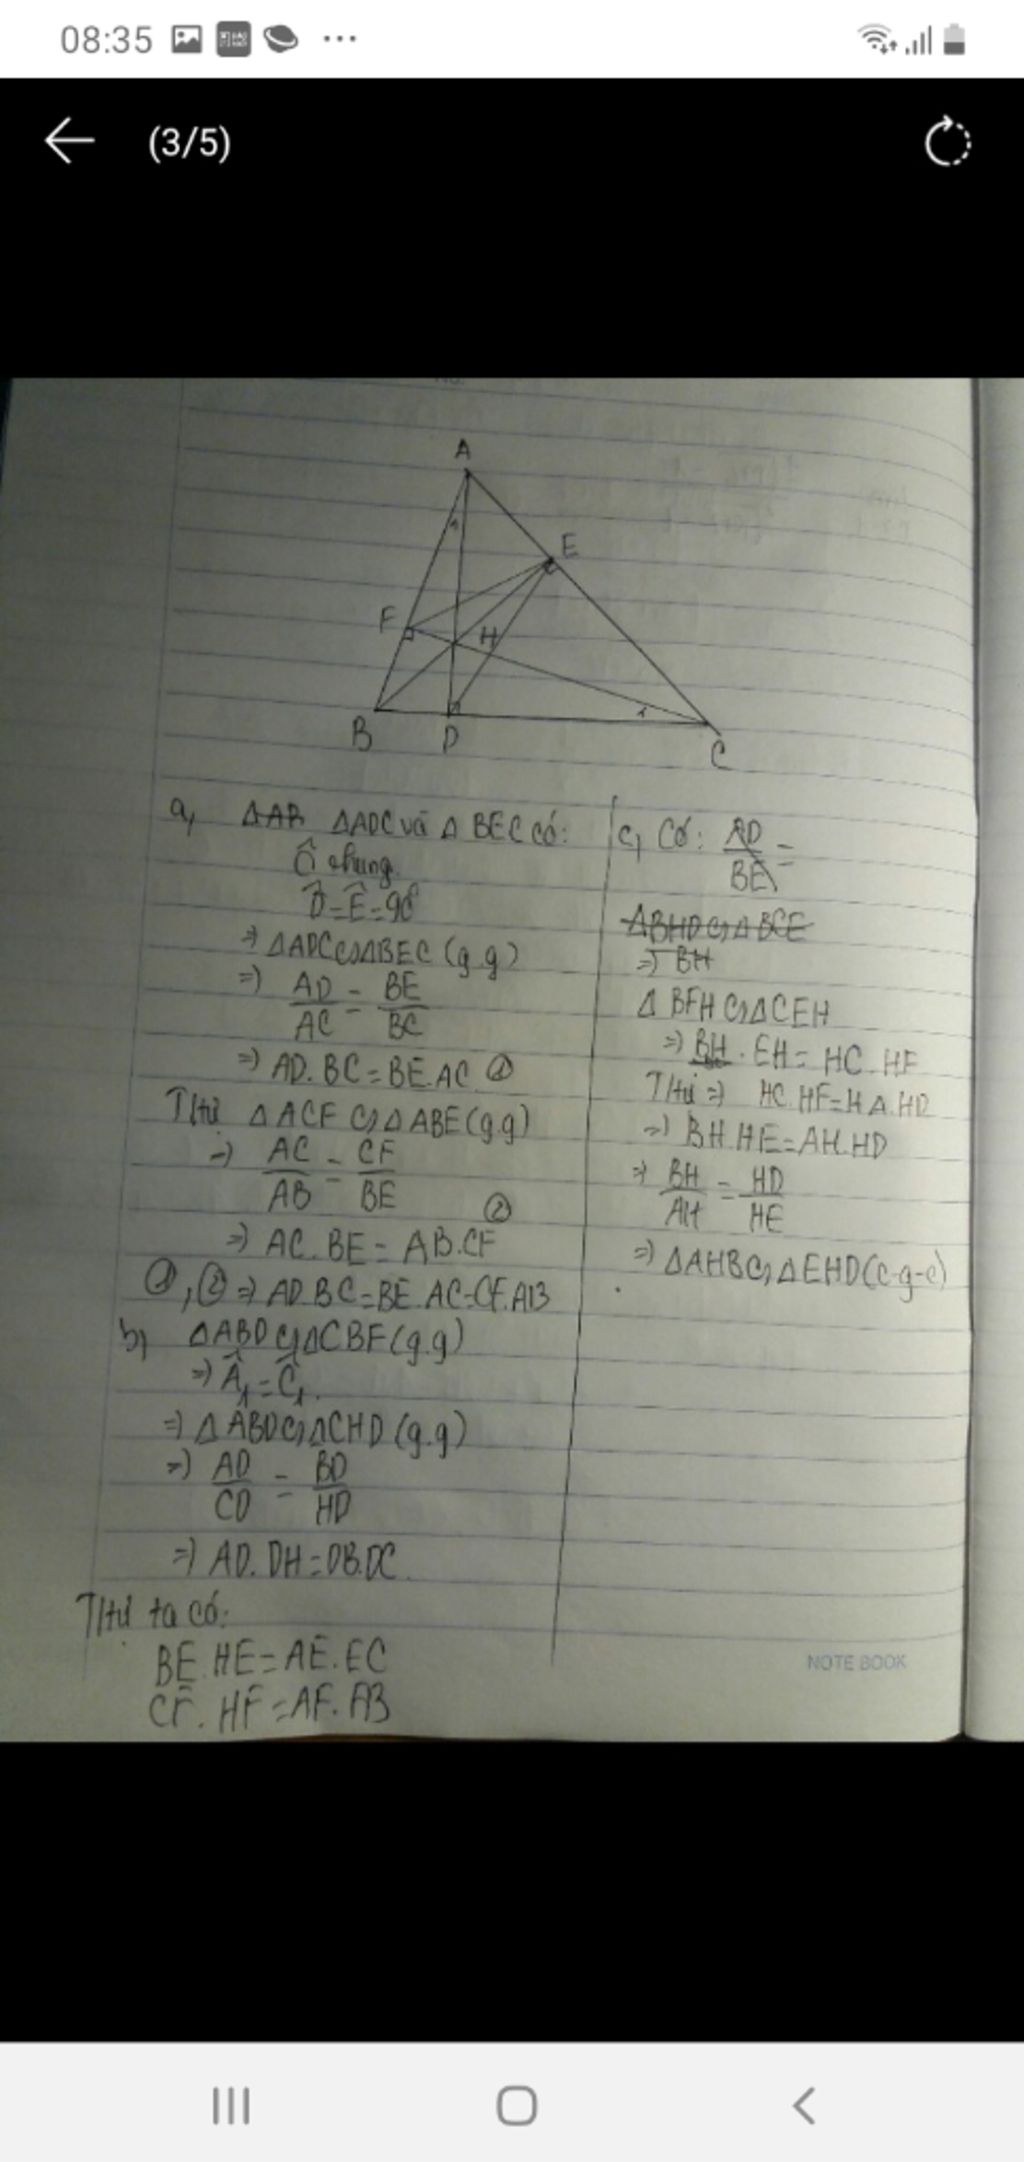 08:35
(3/5)
A
E
F
H
B
D
C
1
1
a,
ΔAB ΔADC và Δ BEC có:
Ĉ chung
D̂=Ê=90°
=> ΔADC ∽ ΔBEC (g.g)
=> AD/AC = BE/BC
=> AD.BC=BE.AC ①
T/tự ΔACF ∽ ΔABE (g.g)
=> AC/AB = CF/BE
=> AC.BE = AB.CF ②
①,② => AD.BC=BE.AC=CF.AB
b, ΔABD ∽ ΔCBF (g.g)
=> Â₁=Ĉ₁.
=> ΔABD ∽ ΔCHD (g.g)
=> AD/CD = BD/HD
=> AD.DH=DB.DC
T/tự ta có:
BE.HE=AE.EC
CF.HF=AF.FB
c, Có: AD/BE =
ΔBHD ∽ ΔBCE
=> BH
Δ BFH ∽ ΔCEH
=> BH.EH= HC.HF
T/tự => HC.HF=HA.HD
=> BH.HE=AH.HD
=> BH/AH = HD/HE
=> ΔAHB ∽ ΔEHD (c-g-c)
NOTE BOOK